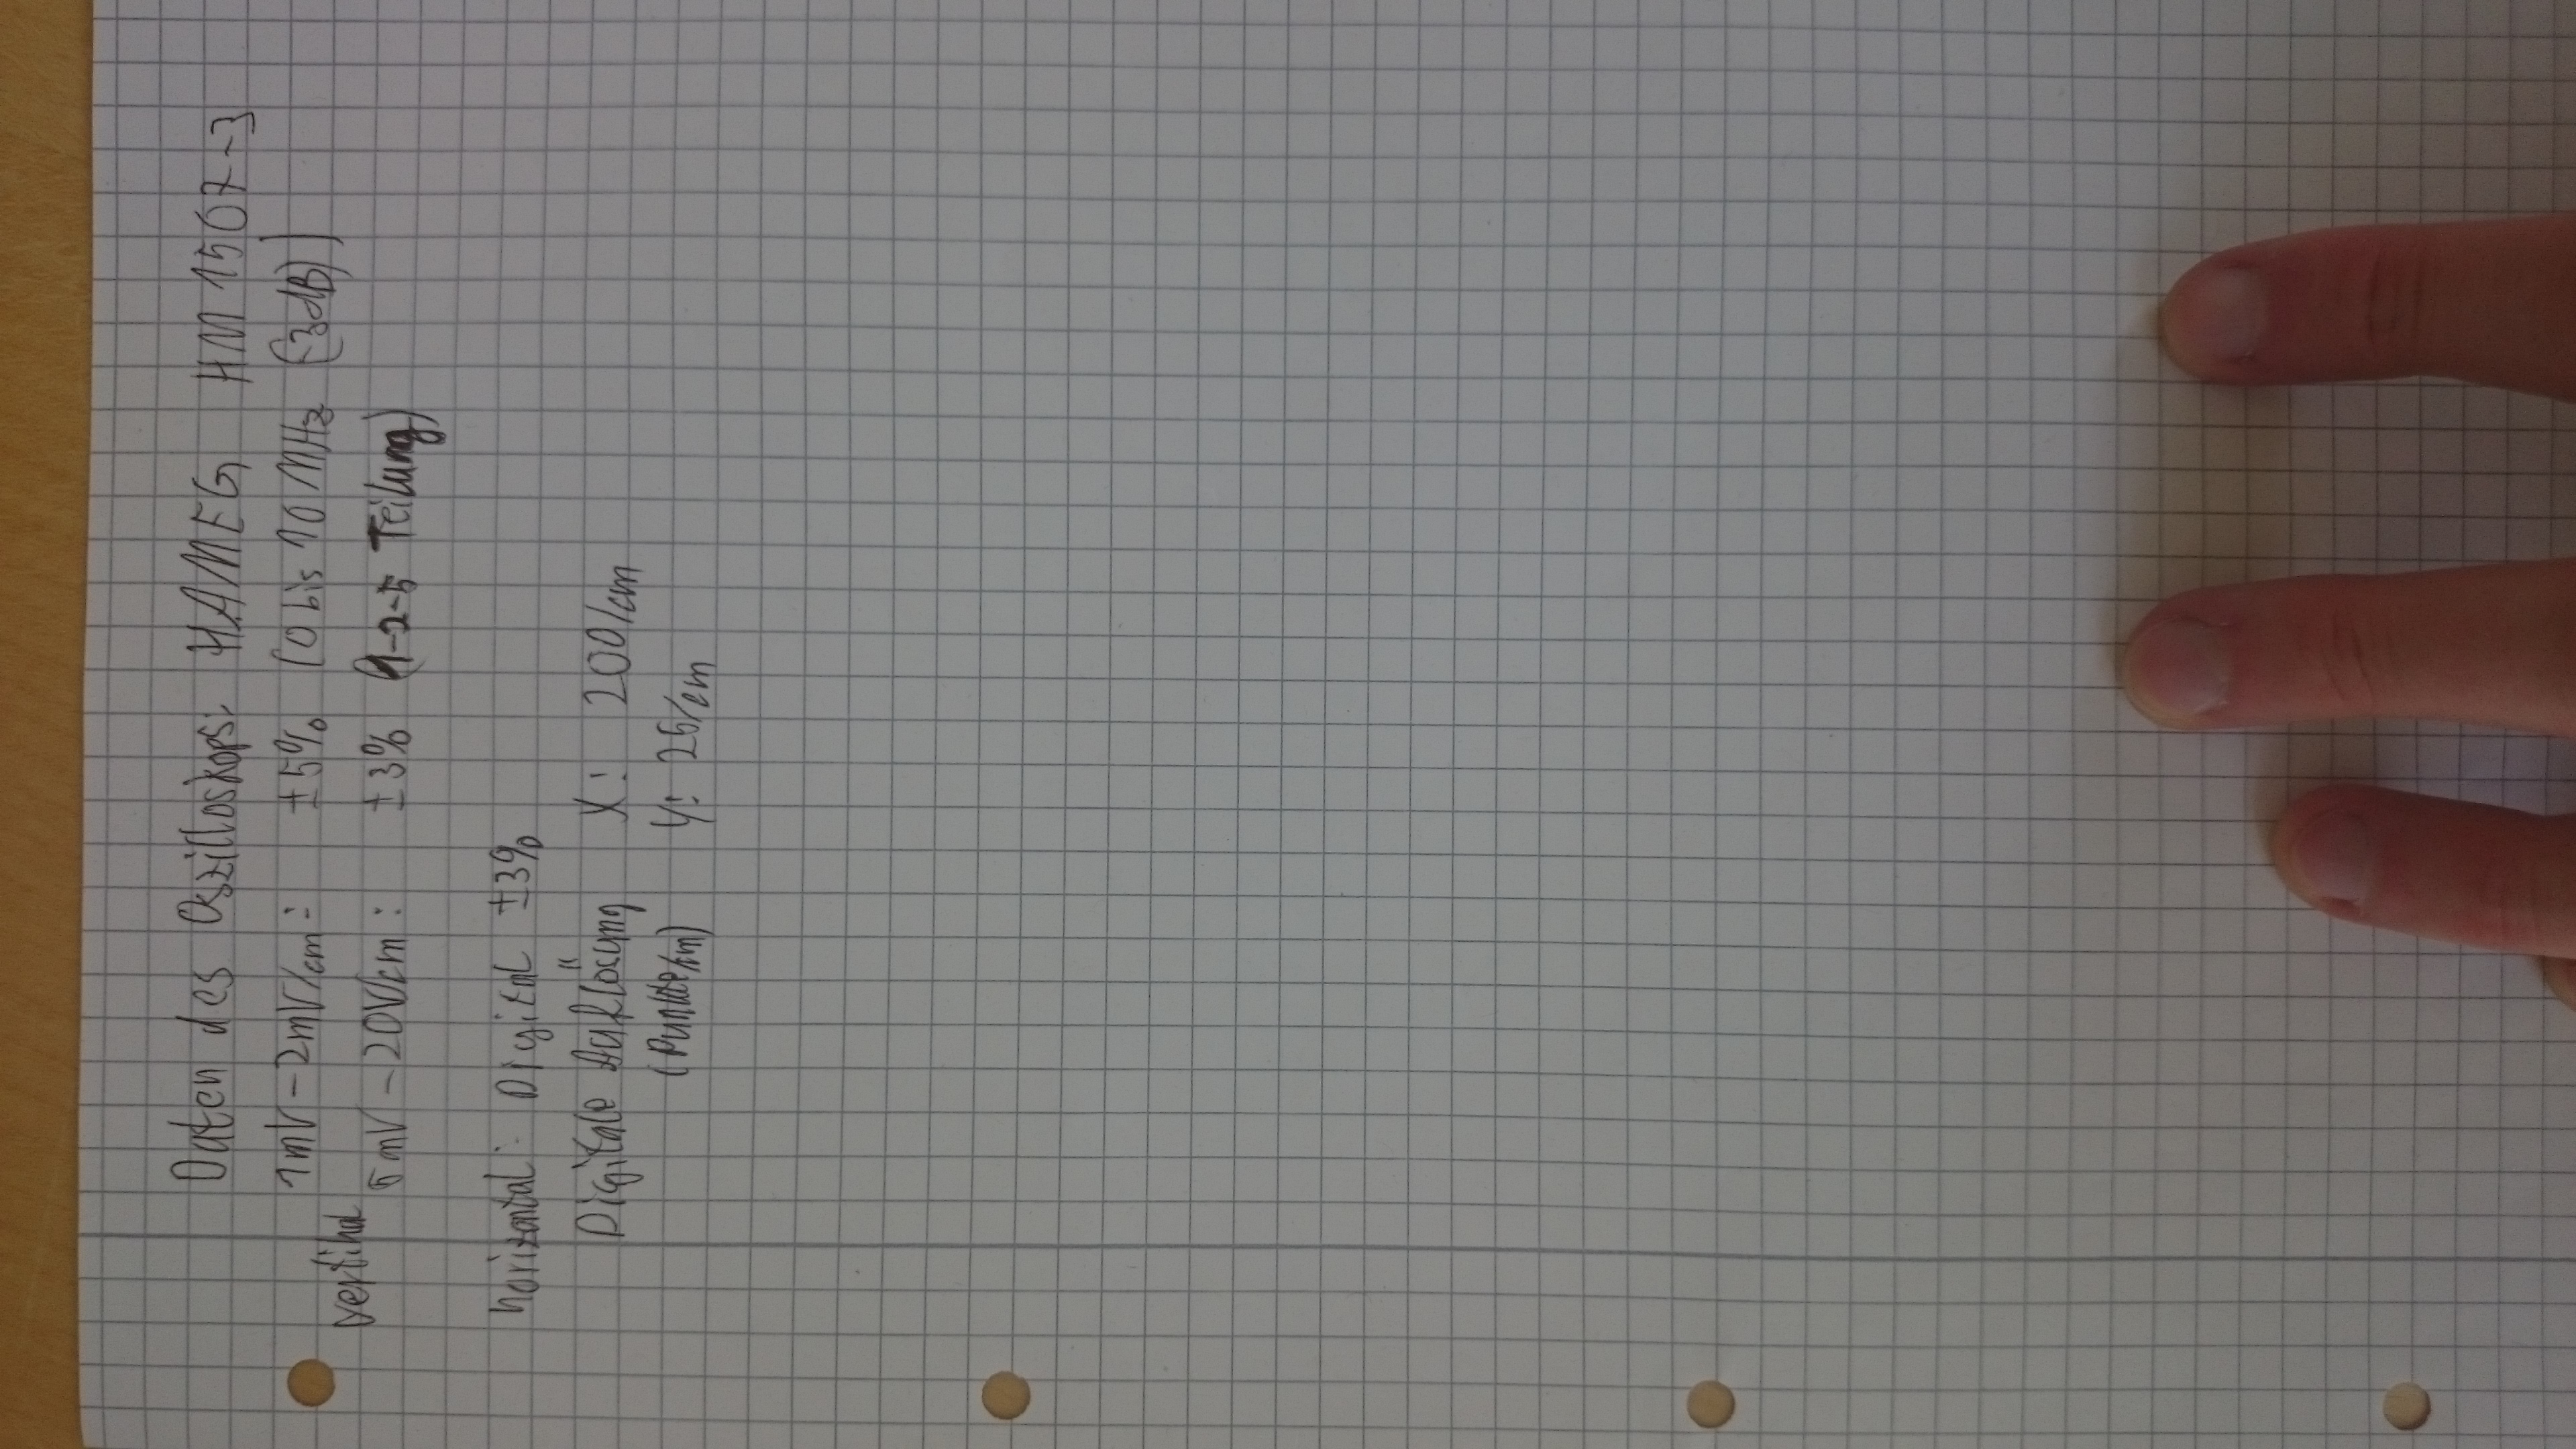 Daten des Oszilloskops: HAMEG HM 1507-3
1mV - 2mV/cm: ±5% (0 bis 10 MHz (-3dB))
vertikal
5mV - 20V/cm: ±3% (1-2-5 Teilung)
horizontal: Digital ±3%
Digitale Auflösung X: 200/cm
(Punkte/cm) Y: 25/cm